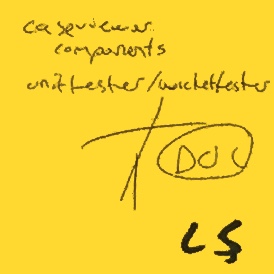 caseviewer
components
unittester/wickettester
DOC
LS